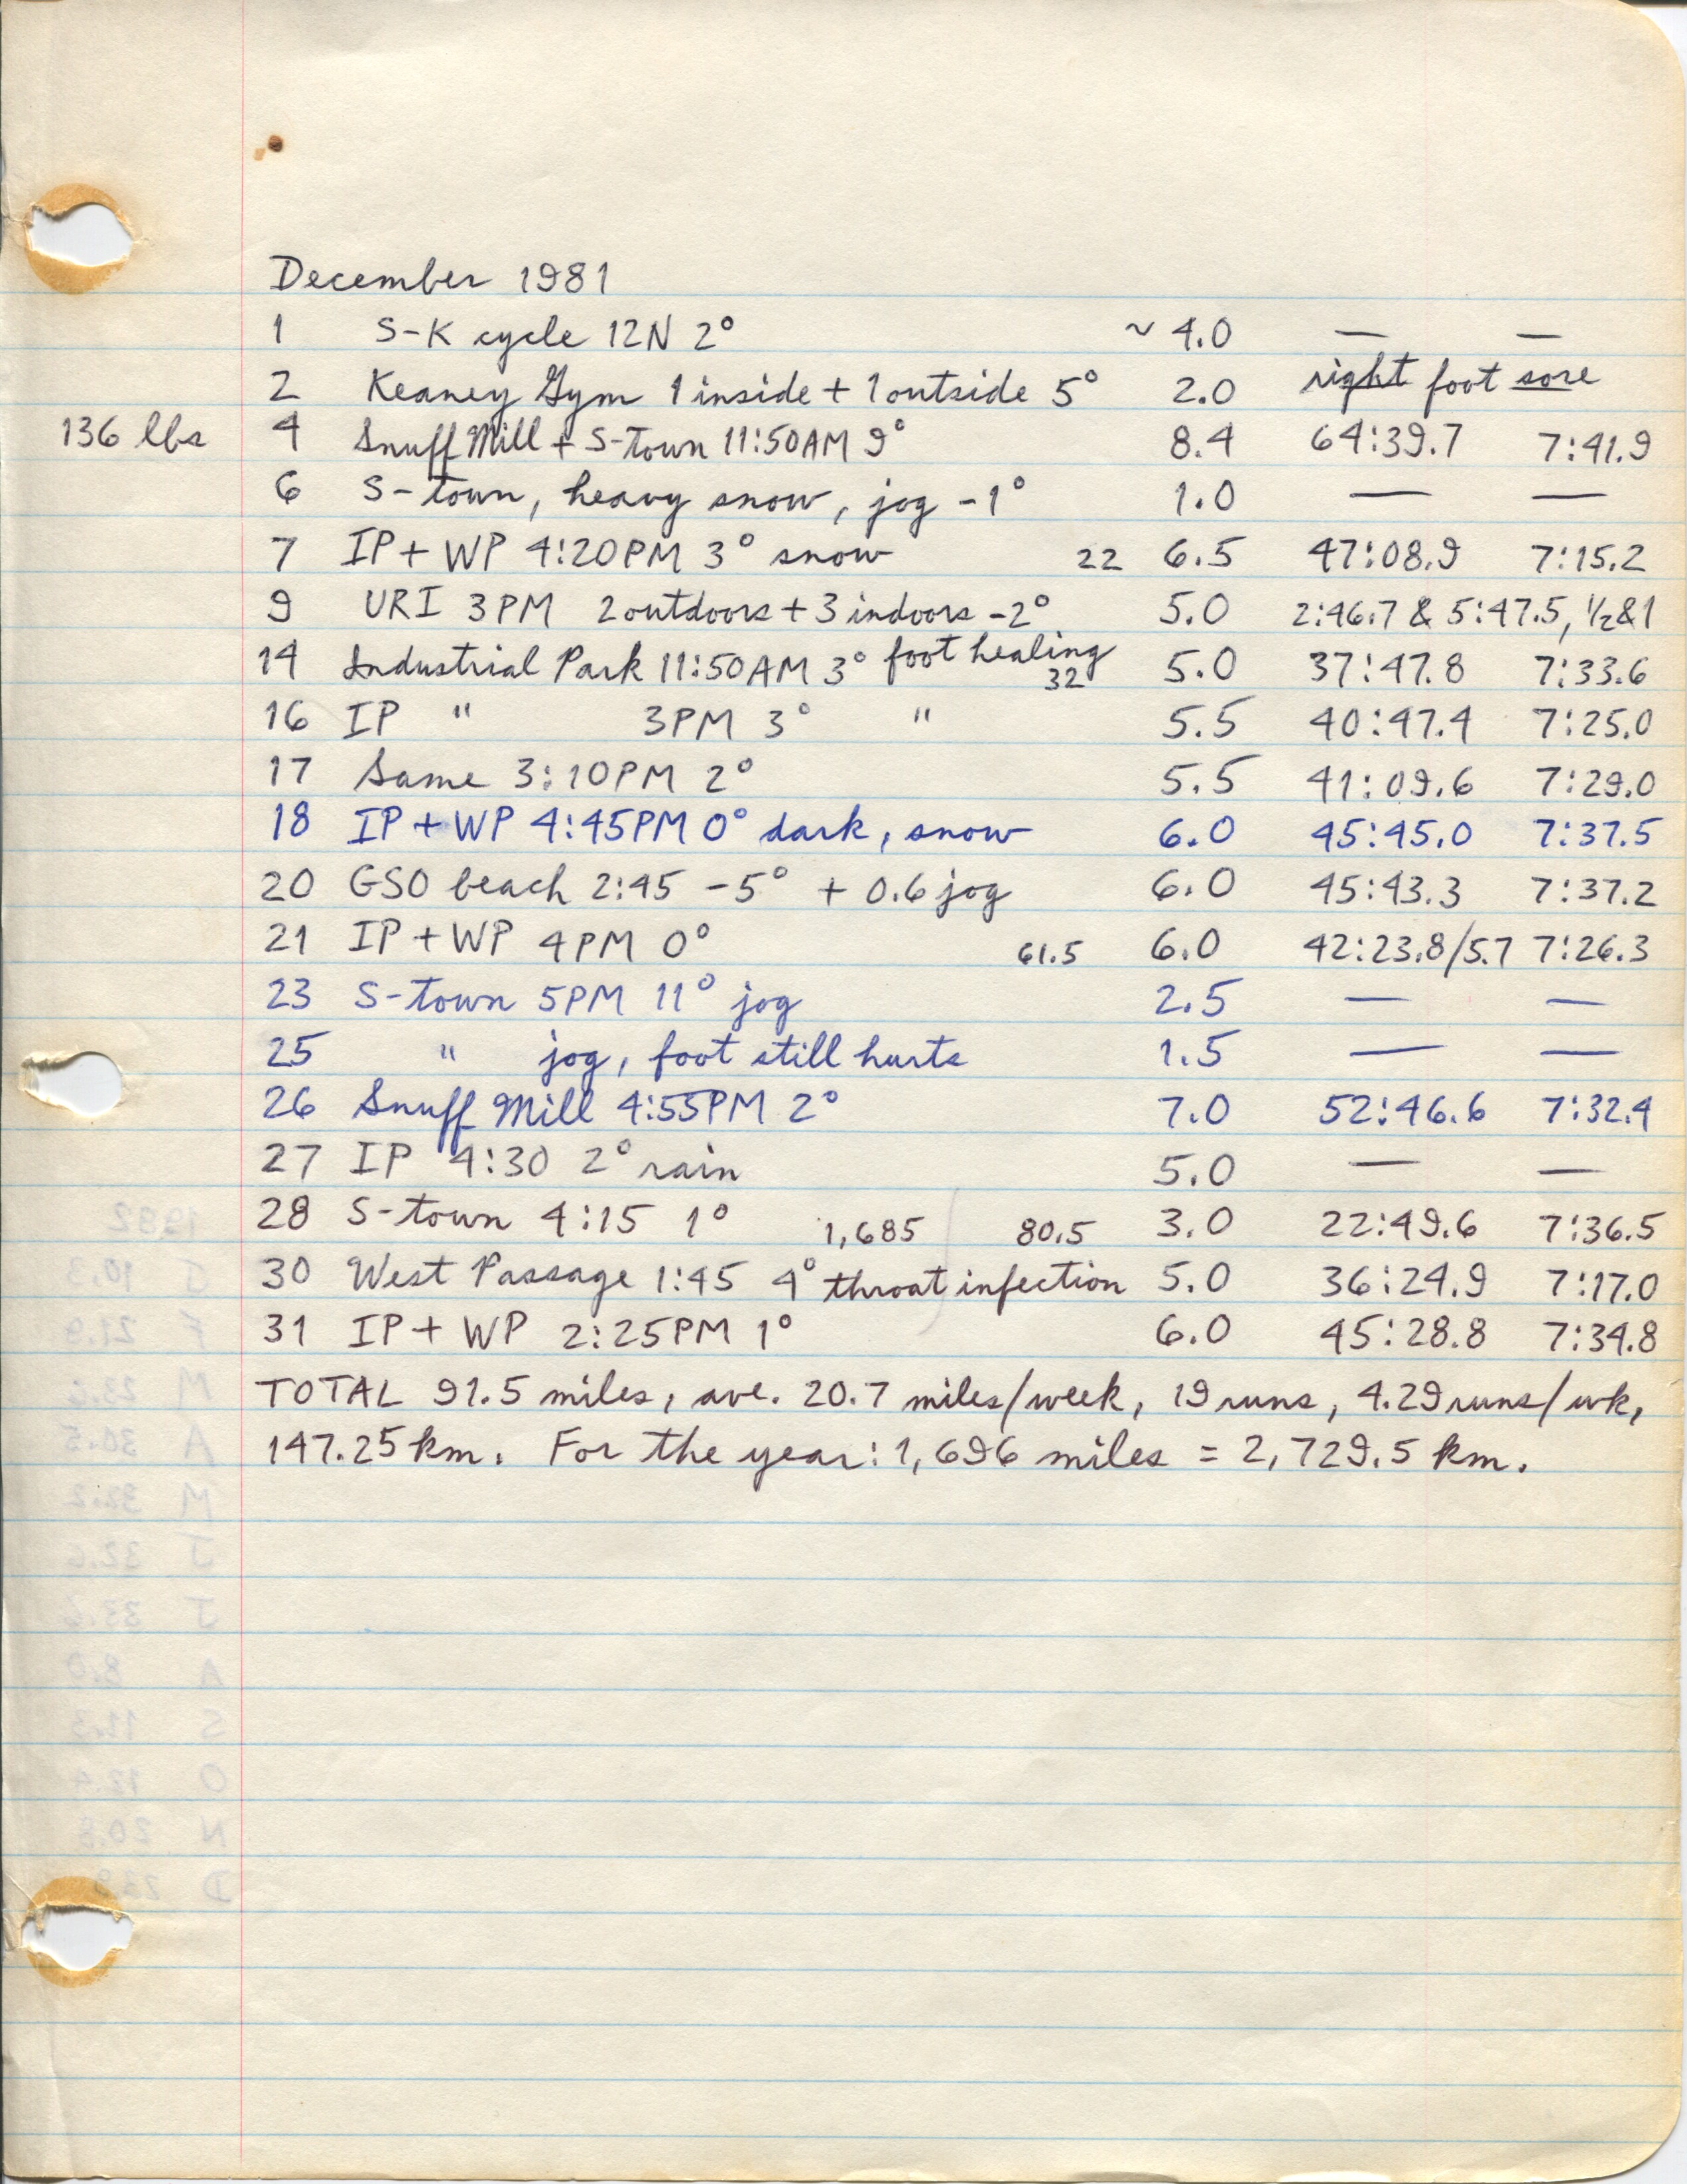 December 1981
1 S-K cycle 12N 2° ~ 4.0 — —
2 Keaney Gym 1 inside + 1 outside 5° 2.0 right foot sore
136 lbs 4 Snuff Mill + S-Town 11:50AM 9° 8.4 64:39.7 7:41.9
6 S-town, heavy snow, jog -1° 1.0 — —
7 IP + WP 4:20PM 3° snow 22 6.5 47:08.9 7:15.2
9 URI 3PM 2 outdoors + 3 indoors -2° 5.0 2:46.7 & 5:47.5, ½&1
14 Industrial Park 11:50AM 3° foot healing 32 5.0 37:47.8 7:33.6
16 IP " 3PM 3° " 5.5 40:47.4 7:25.0
17 Same 3:10PM 2° 5.5 41:09.6 7:29.0
18 IP + WP 4:45PM 0° dark, snow 6.0 45:45.0 7:37.5
20 GSO beach 2:45 -5° + 0.6 jog 6.0 45:43.3 7:37.2
21 IP + WP 4PM 0° 61.5 6.0 42:23.8/5.7 7:26.3
23 S-town 5PM 11° jog 2.5 — —
25 " jog, foot still hurts 1.5 — —
26 Snuff Mill 4:55PM 2° 7.0 52:46.6 7:32.4
27 IP 4:30 2° rain 5.0 — —
28 S-town 4:15 1° 1,685 80.5 3.0 22:49.6 7:36.5
30 West Passage 1:45 4° throat infection 5.0 36:24.9 7:17.0
31 IP + WP 2:25PM 1° 6.0 45:28.8 7:34.8
TOTAL 91.5 miles, ave. 20.7 miles/week, 19 runs, 4.29 runs/wk,
147.25 km. For the year: 1,696 miles = 2,729.5 km.